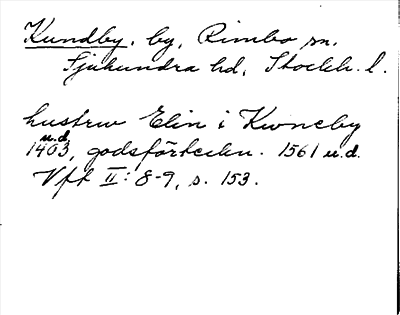 Kundby, by, Rimbo sn.
Sjuhundra hd, Stockh. l.
hustrw Elin i Kwneby
u.d.
1403, godsförteckn. 1561 u.d.
Vft II: 8-9, s. 153.